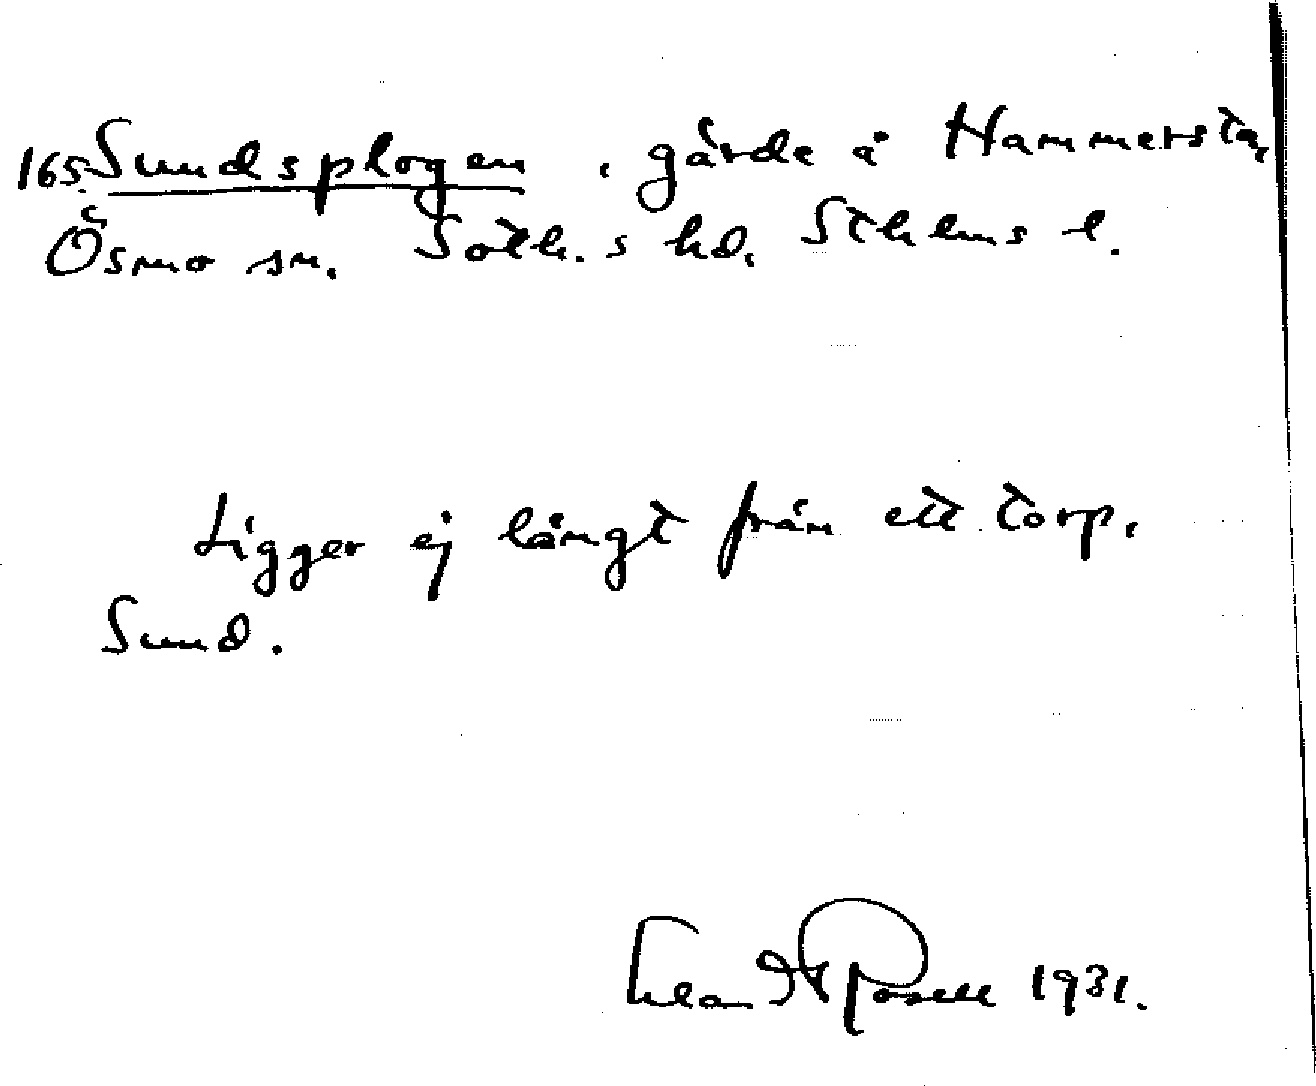 165. Sundsplogen, gärde å Hammersta,
Ösmo sn. Soth.s hd. Sthlms l.
Ligger ej långt från ett torp,
Sund.
1931.